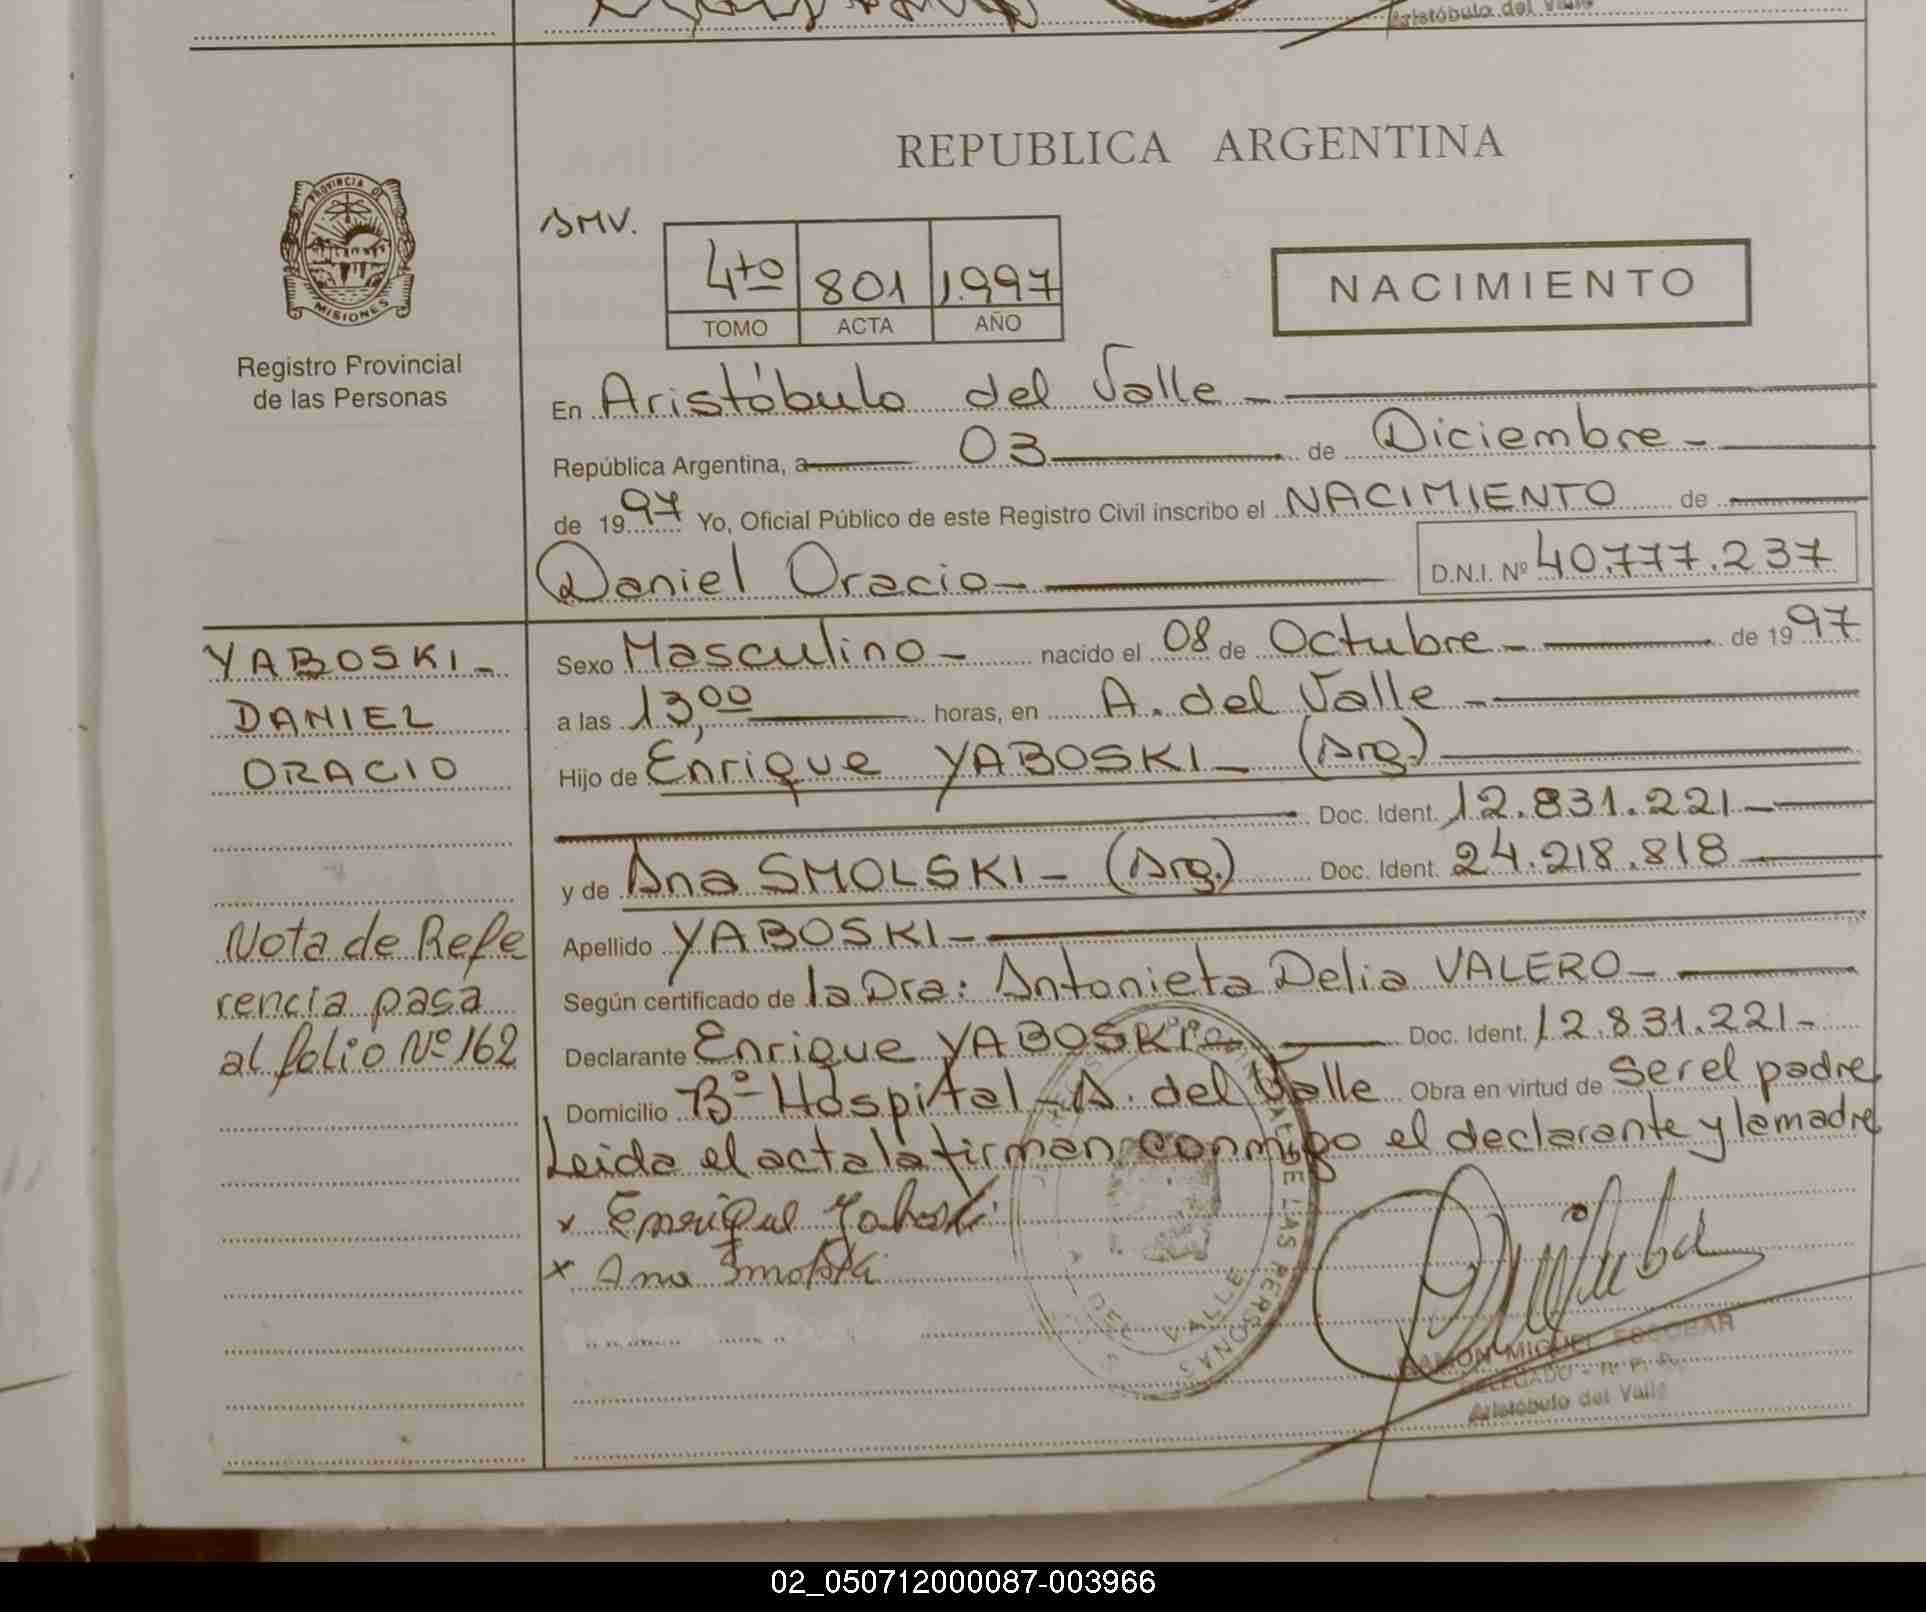 Aristóbulo del Valle
REPUBLICA ARGENTINA
PROVINCIA DE
MISIONES
Registro Provincial
de las Personas
SMV.
4to 801 1.997
TOMO ACTA AÑO
NACIMIENTO
En Aristóbulo del Valle -
República Argentina, a 03 de Diciembre -
de 1997 Yo, Oficial Público de este Registro Civil inscribo el NACIMIENTO de
Daniel Oracio - D.N.I. Nº 40.777.237
YABOSKI -
DANIEL
ORACIO
Nota de Refe
rencia pasa
al folio Nº 162
Sexo Masculino - nacido el 08 de Octubre - de 1997
a las 13,00 horas, en A. del Valle -
Hijo de Enrique YABOSKI - (Arg.)
Doc. Ident. 12.831.221 -
y de Ana SMOLSKI - (Arg.) Doc. Ident. 24.218.818
Apellido YABOSKI -
Según certificado de la Dra: Antonieta Delia VALERO -
Declarante Enrique YABOSKI - Doc. Ident. 12.831.221 -
Domicilio Bº Hospital - A. del Valle Obra en virtud de ser el padre
Leida el acta la firman conmigo el declarante y la madre
x Enrique Yaboski
x Ana Smolski
DE LAS PERSONAS
DEL VALLE
RAMON MIQUEL ESCOBAR
DELEGADO - R. P. P.
Aristóbulo del Valle
02_050712000087-003966